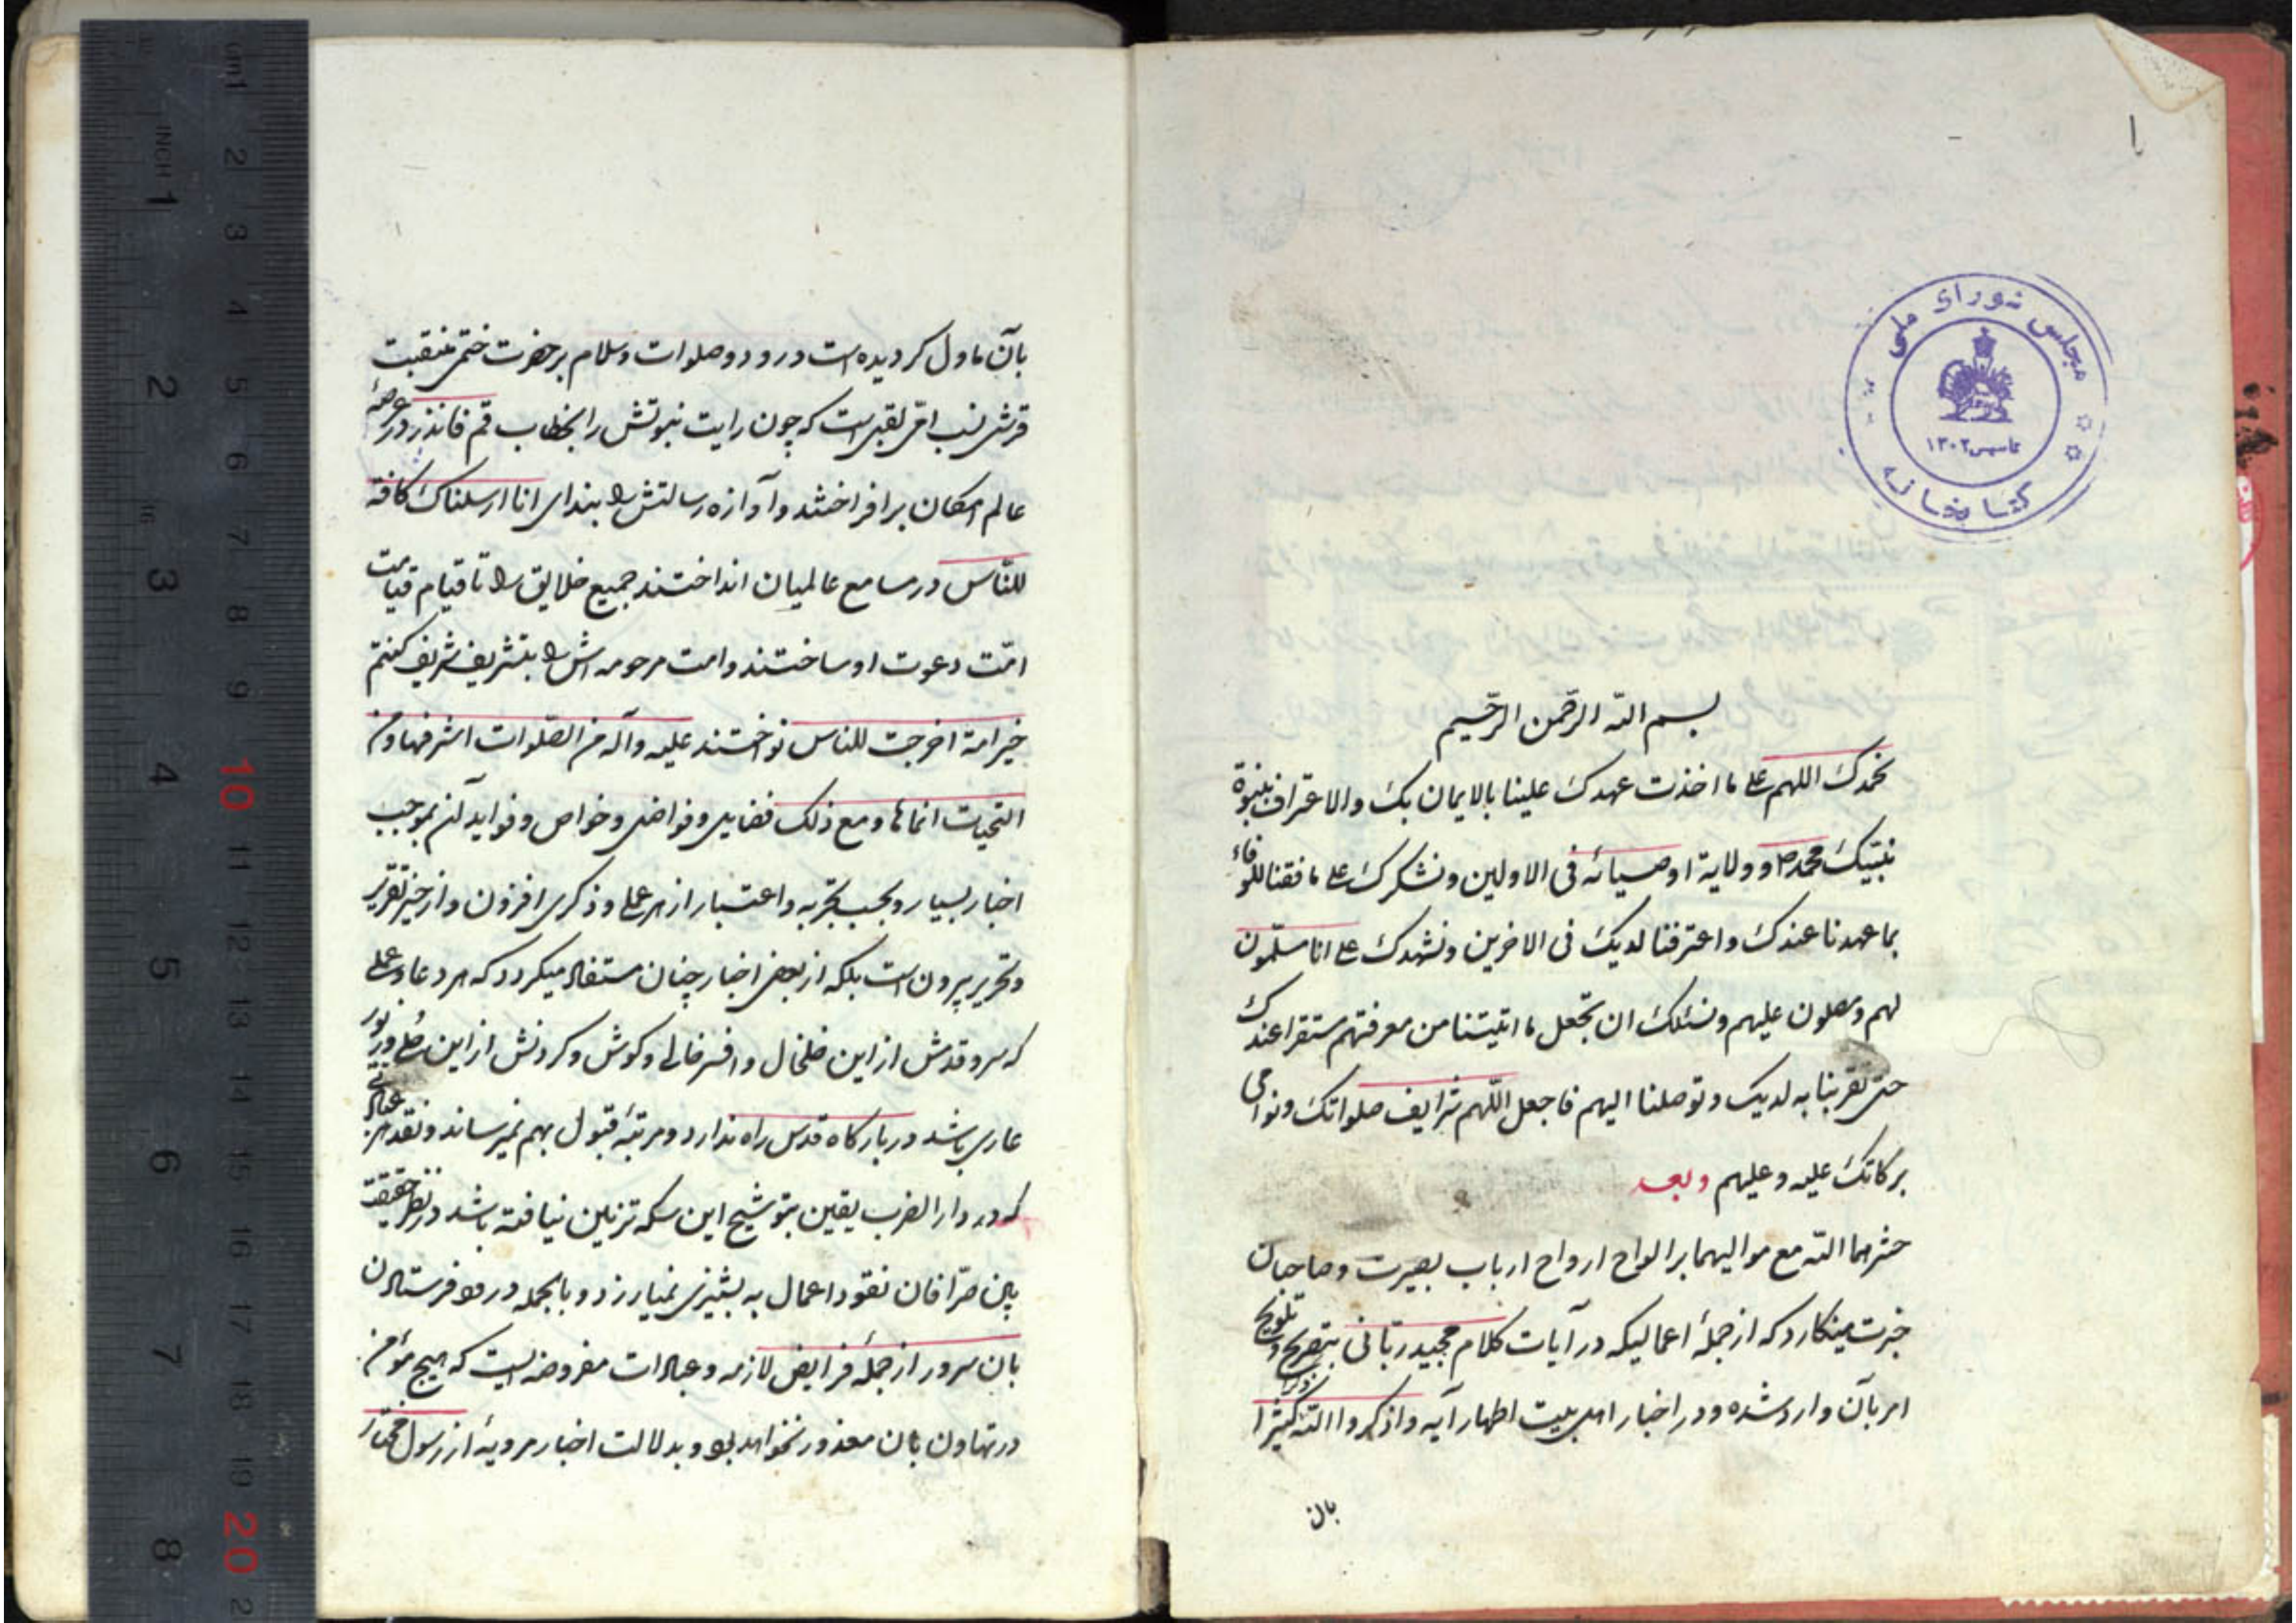 ۱
مجلس شورای ملی
تاسیس ۱۳۰۲
کتابخانه
بسم الله الرحمن الرحیم
نحمدک اللهم علی ما اخذت عهدک علینا بالایمان بک والاعتراف بنبوة
نبیک محمد ص و ولایة اوصیائه فی الاولین ونشکرک علی ما وفقنا للوفاء
بما عهدنا عندک واعترفنا لدیک فی الاخرین ونشهدک علی انا مسلمون
لهم ومصلون علیهم ونسئلک ان تجعل ما اتیتنا من معرفتهم مستقرا عندک
حتی تقربنا به لدیک وتوصلنا الیهم فاجعل اللهم شرایف صلواتک ونوامی
برکاتک علیه وعلیهم وبعد
حشرهما الله مع موالیهما بر الواح ارواح ارباب بصیرت وصاحبان
خبرت مینکارد که از جملهٔ اعمالیکه در آیات کلام مجید ربانی بتصریح وتلویح
امر بآن وارد شده ودر اخبار اهل بیت اطهار آیه واذکروا الله ذکرا کثیرا
بان
بآن ماول کردیده است درود وصلوات وسلام بر حضرت ختمی منقبت
قرشی نسب امی لقبی است که چون رایت نبوتش را بخطاب قم فانذر در عرصهٔ
عالم امکان برافراختند وآوازه رسالتش را بندای انا ارسلناک کافة
للناس در مسامع عالمیان انداختند جمیع خلایق را تا قیام قیامت
امت دعوت او ساختند وامت مرحومه اش را بتشریف شریف کنتم
خیر امة اخرجت للناس نواختند علیه وآله من الصلوات اشرفها ومن
التحیات انماها ومع ذلک فضایل وفواضل وخواص وفواید آن بموجب
اخبار بسیار وبحسب تجربه واعتبار از هر عملی وذکری افزون واز حیز تقریر
وتحریر بیرون است بلکه از بعض اخبار چنان مستفاد میکردد که هر دعا وعملی
که سر وقدمش از این خلخال وافسر خالی وکوش وکردنش از این حلی وزیور
عاری باشد در بارگاه قدس راه ندارد ومرتبهٔ قبول بهم نمیرساند ونقد هر عبادتی
که در دار الضرب یقین بتوشیح این سکه تزیین نیافته باشد در نظر حقیقت
بین صرافان نقود اعمال به پشیزی نمیارزد وبالجمله درود فرستادن
بان سرور از جملهٔ فرایض لازمه وعبادات مفروضه ایست که هیچ مؤمن
در تهاون بان معذور نخواهد بود وبدلالت اخبار مرویهٔ از رسول مختار